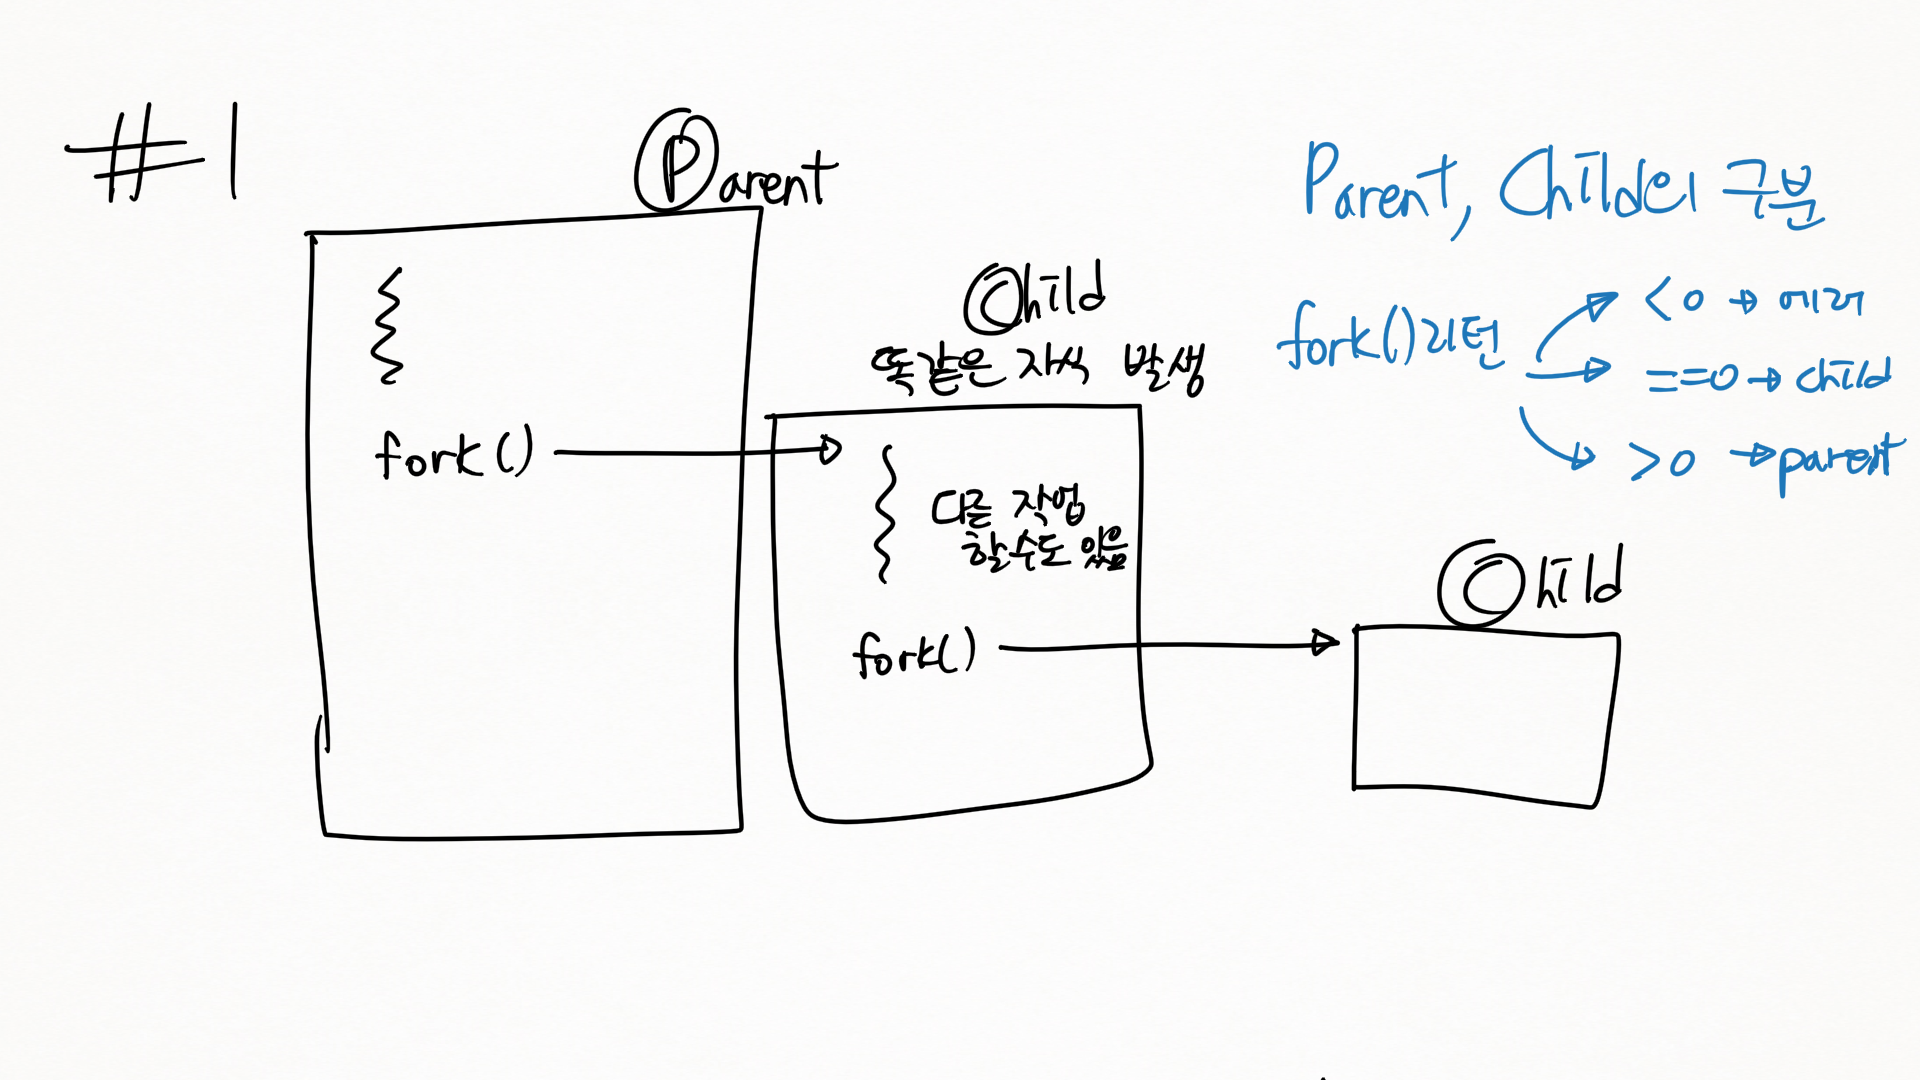 #1
Parent
Child
똑같은 자식 발생
fork()
다른 작업
할수도 있음
fork()
Child
Parent, Child의 구분
fork()리턴
<0 → 에러
==0 → child
>0 → parent